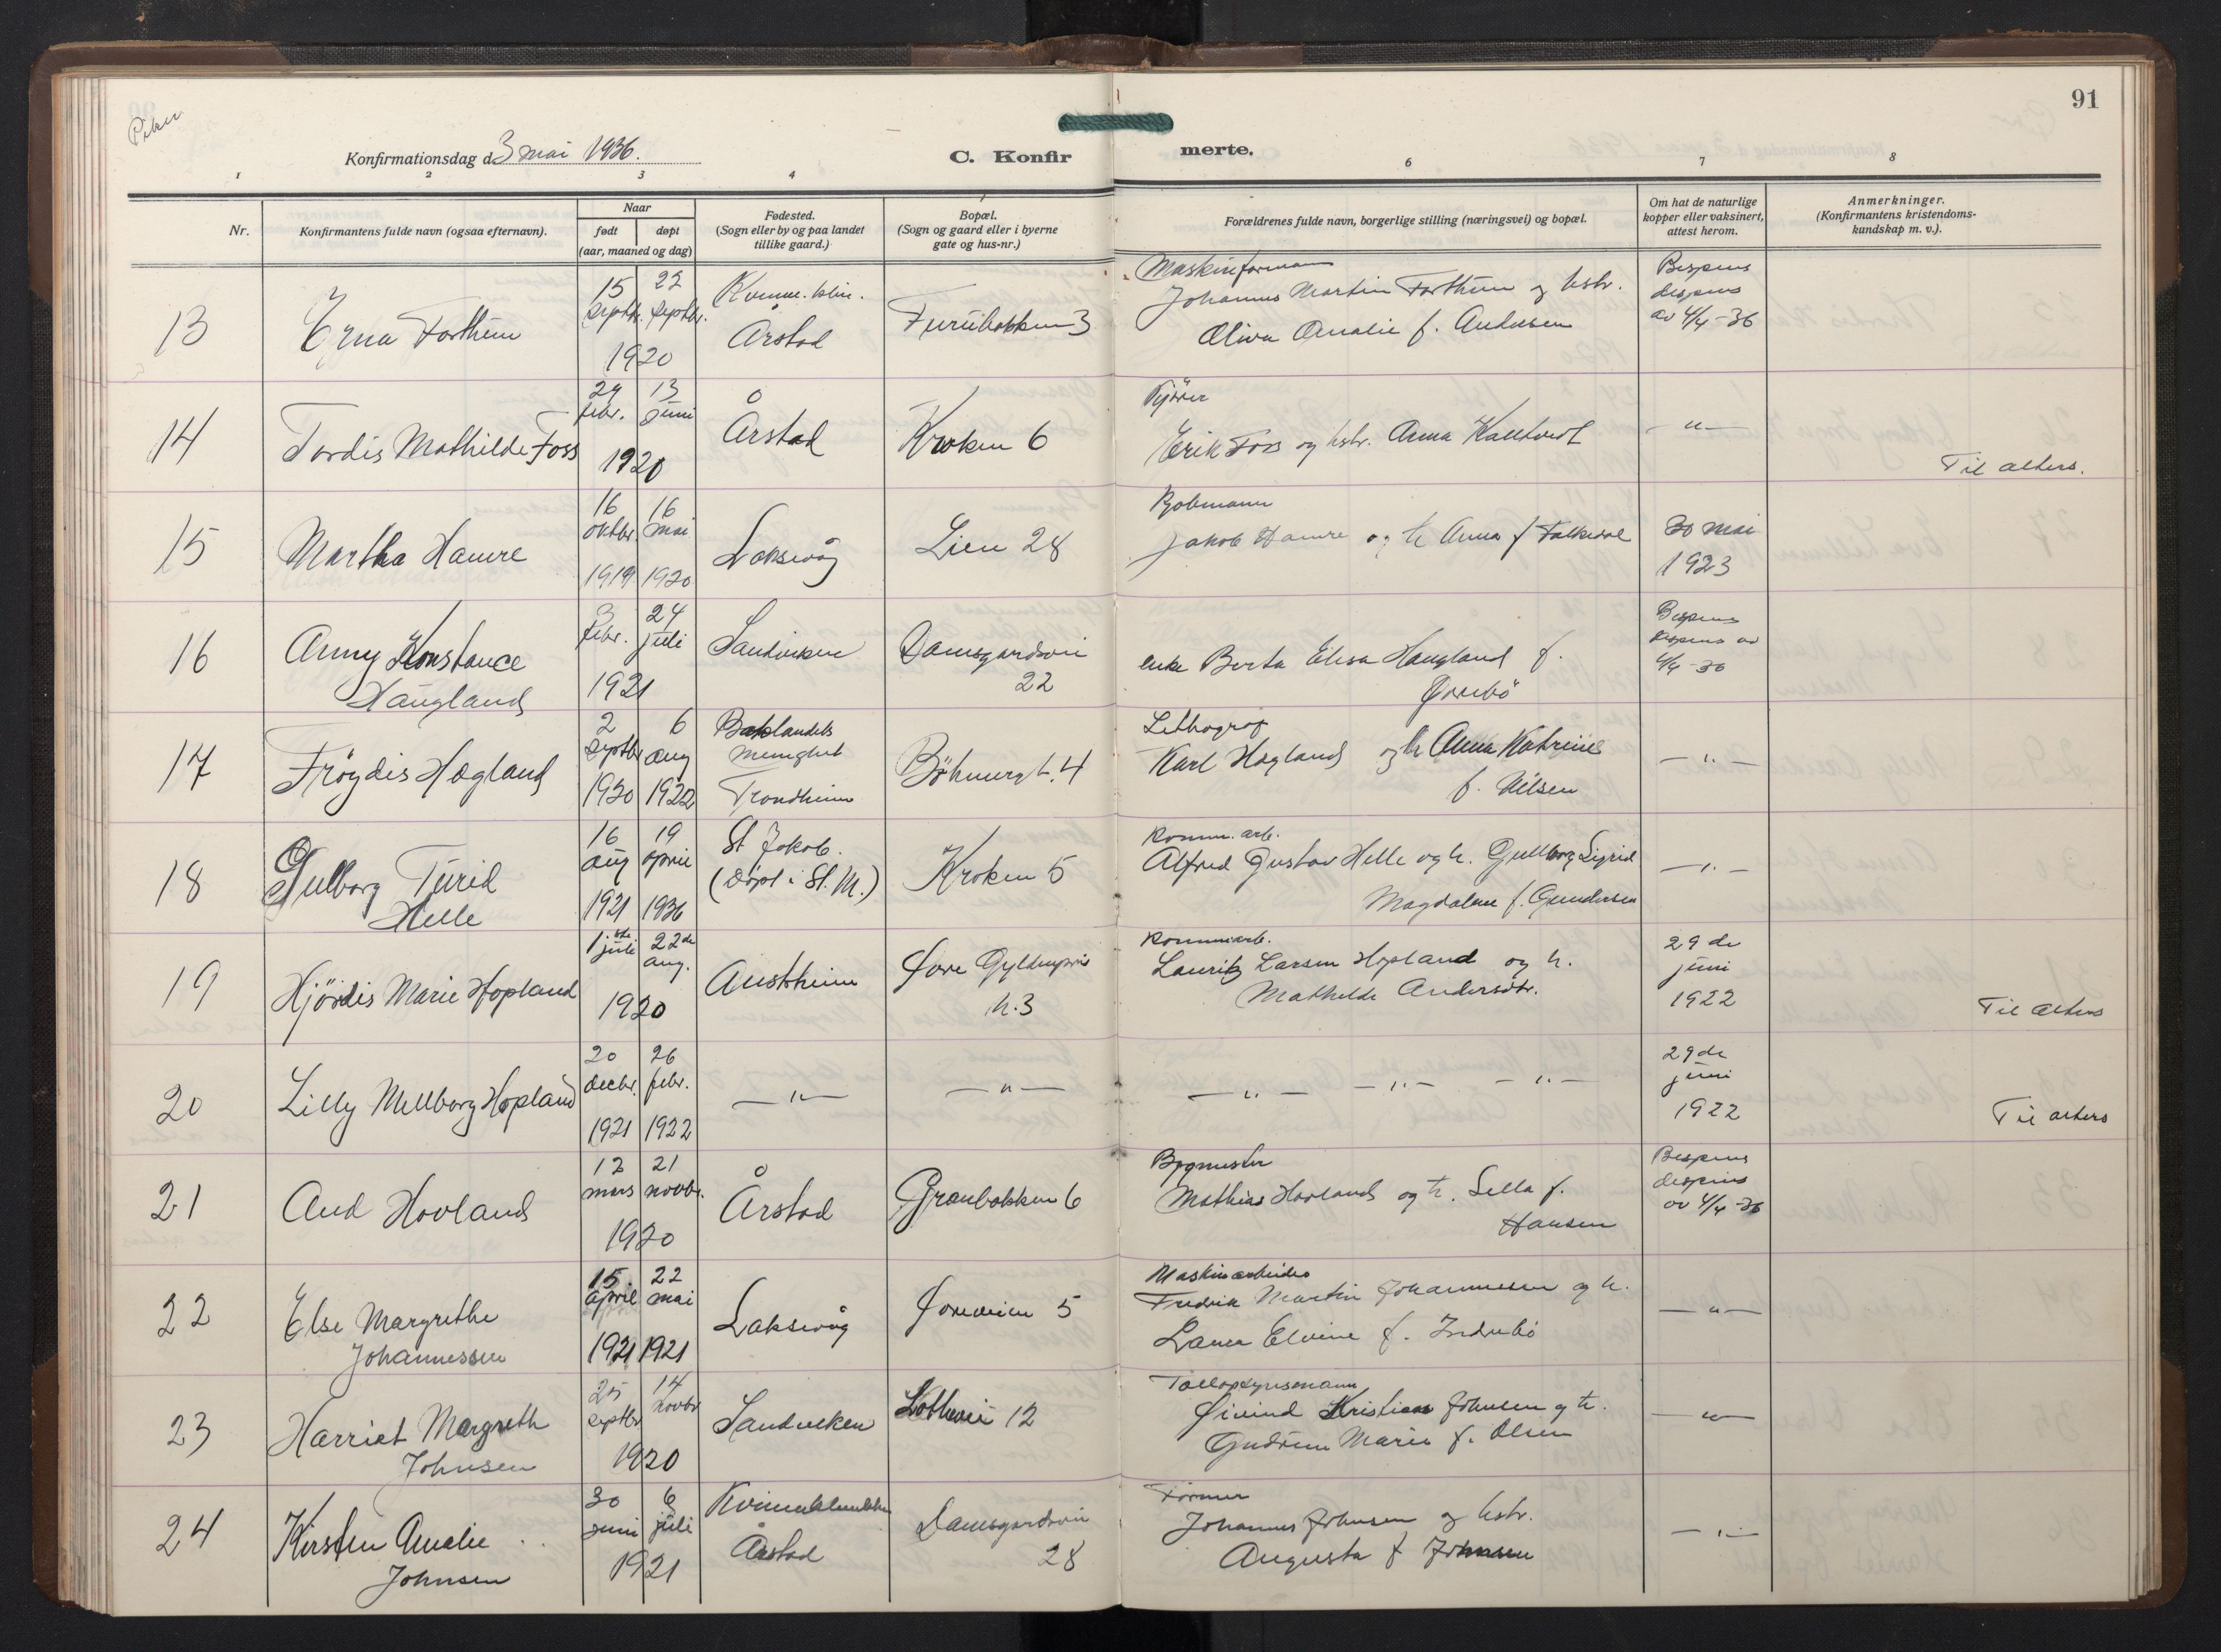 Piker
91
Konfirmationsdag d. 3 mai 1936.
C. Konfir merte.
1 2 3 4 5 6 7 8
Nr.
Konfirmantens fulde navn (ogsaa efternavn).
Naar
født døpt
(aar, maaned og dag)
Fødested.
(Sogn eller by og paa landet
tillike gaard.)
Bopæl.
(Sogn og gaard eller i byerne
gate og hus-nr.)
Forældrenes fulde navn, borgerlige stilling (næringsvei) og bopæl.
Om hat de naturlige
kopper eller vaksinert,
attest herom.
Anmerkninger.
(Konfirmantens kristendoms-
kundskap m. v.).
13
Erna Forthun
15 septbr. 22 septbr.
1920
Kvinne.klin.
Årstad
Furubakken 3
Maskinformann
Johannes Martin Forthun og hstr.
Oliva Amalie f. Andersen
Bispens
dispens
av 4/4-36
14
Tordis Mathilde Foss
29 febr. 13 juni
1920
Årstad
Kroken 6
Kjører
Erik Foss og hstr. Anna Kalltvedt
— " —
Til alters.
15
Martha Hamre
16 oktbr. 16 mai
1919 1920
Laksevåg
Lien 28
Jakob Hamre og h Anna f Falkedal
30 mai
1923
16
Anny Konstance
Haugland
3 febr. 24 juli
1921
Sandviken
Damsgardsvei
22
enke Berta Elisa Haugland f.
Bispens
dispens av
4/4-36
17
Frøydis Hagland
2 septbr 6 aug
1920 1922
Baklandets
menighet
Trondheim
Böhmergt. 4
Lithograf
Karl Hagland og h Anna Katrine
f. Nilsen
— " —
18
Gulborg Turid
Helle
16 aug 19 april
1921 1936
St Jakob.
(Døpt i St. M.)
Kroken 5
Komm. arb.
Alfred Gustav Helle og h. Gullborg Sigrid
Magdalene f. Gundersen
— " —
19
Hjördis Marie Hopland
1ste juli 22de aug.
1920
Austrheim
Øvre Gyldenpris
h. 3
Kommarb.
Lauritz Larsen Hopland og h.
Mathilde Andersdtr.
29 de
juni
1922
Til alters
20
Lilly Mellborg Hopland
20 decbr. 26 febr.
1921 1922
— " —
— " —
— " — — " — — " —
29 de
juni
1922
Til alters
21
Aud Hovland
12 mars 21 novbr.
1920
Årstad
Granbakken 6
Bygmester
Mathias Hovland og h. Sella f.
Hansen
Bispens
dispens
av 4/4-36
22
Else Margrethe
Johannessen
15. april 22 mai
1921 1921
Laksevåg
Joneveien 5
Maskinarbeider
Fredrik Martin Johannessen og h.
Laura Elvine f. Indrebö
— " —
23
Harriet Margreth
Johnsen
25 septbr 14 novbr
1920
Sandviken
Lotheveien 12
Tollopsynsmann
Øivind Kristian Johnsen og h.
Gudrun Marie f. Olsen
— " —
24
Kirsten Amalie
Johnsen
30 juni 6 juli
1921
Kvinneklinikken
Årstad
Damsgardsvei
28
Former
Johannes Johnsen og hstr.
Augusta f Johnsen
— " —